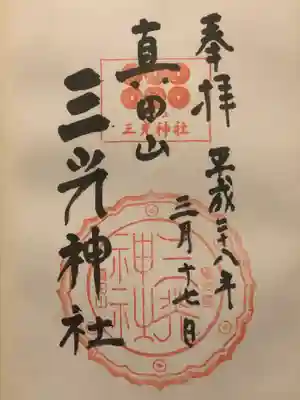 奉拝
平成二十八年
三月十七日
真田山
三光神社
三光神社